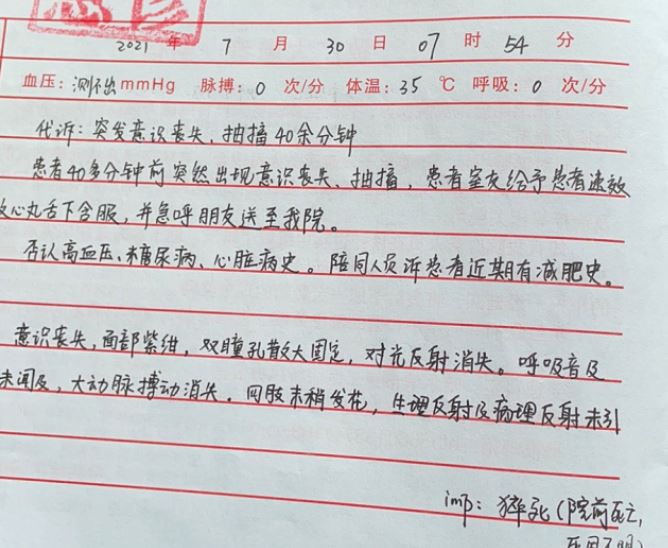 2021 年 7 月 30 日 07 时 54 分
血压: 测不出 mmHg 脉搏: 0 次/分 体温: 35 ℃ 呼吸: 0 次/分
代诉: 突发意识丧失、抽搐40余分钟
患者40多分钟前突然出现意识丧失、抽搐, 患者室友给予患者速效
救心丸舌下含服, 并急呼朋友送至我院。
否认高血压、糖尿病、心脏病史。陪同人员诉患者近期有减肥史。
意识丧失, 面部紫绀, 双瞳孔散大固定, 对光反射消失。呼吸音及
未闻及, 大动脉搏动消失。四肢末稍发花, 生理反射及病理反射未引
imp: 猝死 (院前死亡,